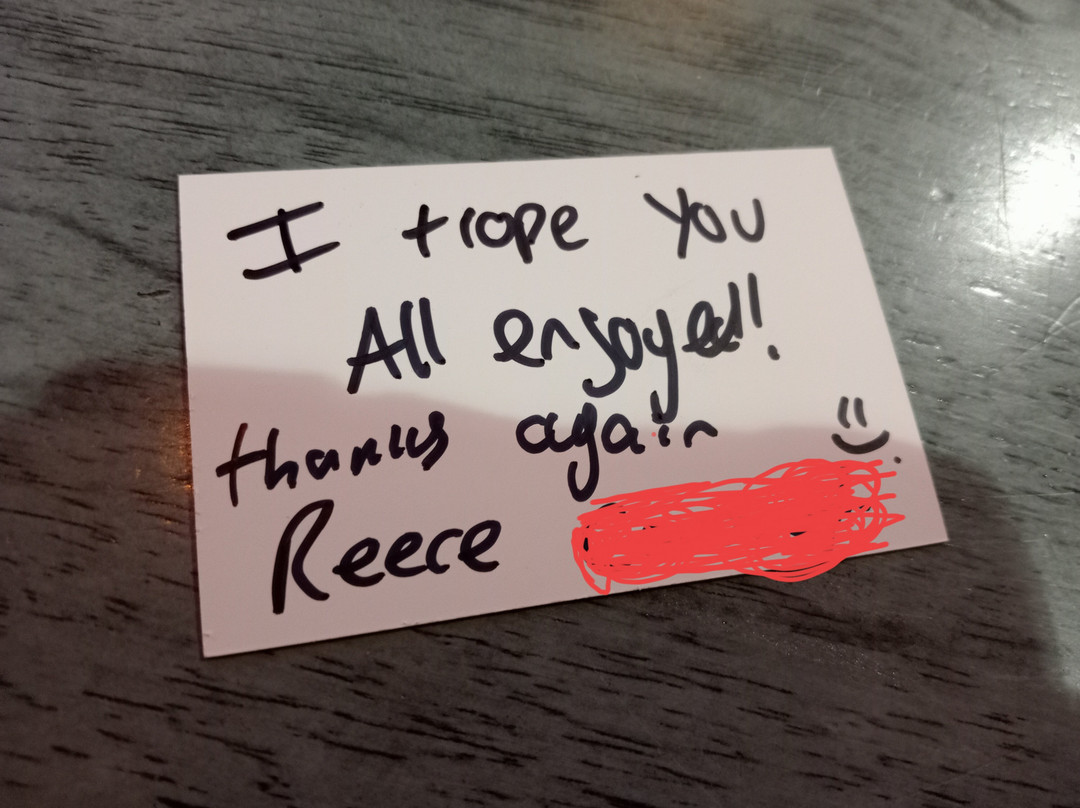 I trope You
All enjoyed!
thanks again
Reece